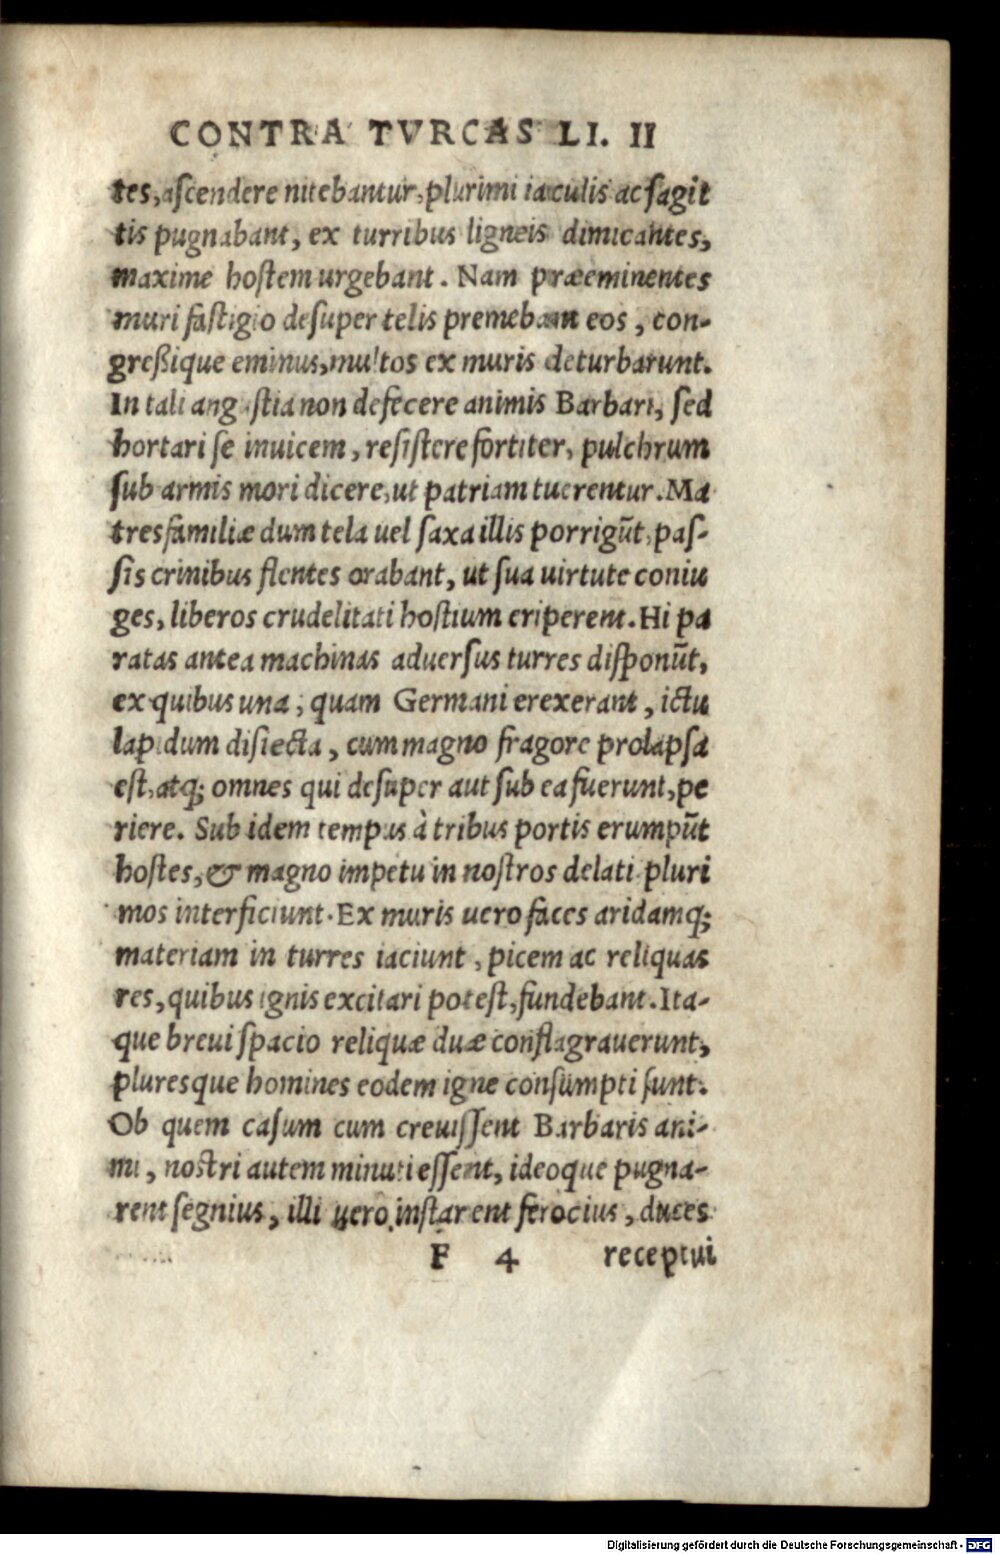 CONTRA TVRCAS LI. II
tes, ascendere nitebantur, plurimi iaculis ac sagit
tis pugnabant, ex turribus ligneis dimicantes,
maxime hostem urgebant. Nam præeminentes
muri fastigio desuper telis premebant eos, con-
greßique eminus, multos ex muris deturbarunt.
In tali angustia non defecere animis Barbari, sed
hortari se inuicem, resistere fortiter, pulchrum
sub armis mori dicere, ut patriam tuerentur. Ma
tresfamiliæ dum tela uel saxa illis porrigūt, pas-
sis crinibus flentes orabant, ut sua uirtute coniu
ges, liberos crudelitati hostium eriperent. Hi pa
ratas antea machinas aduersus turres disponūt,
ex quibus una, quam Germani erexerant, ictu
lapidum disiecta, cum magno fragore prolapsa
est, atq; omnes qui desuper aut sub ea fuerunt, pe
riere. Sub idem tempus à tribus portis erumpūt
hostes, & magno impetu in nostros delati pluri
mos interficiunt. Ex muris uero faces aridamq;
materiam in turres iaciunt, picem ac reliquas
res, quibus ignis excitari potest, fundebant. Ita-
que breui spacio reliquæ duæ conflagrauerunt,
pluresque homines eodem igne consumpti sunt.
Ob quem casum cum creuissent Barbaris ani-
mi, nostri autem minuti essent, ideoque pugna-
rent segnius, illi uero instarent ferocius, duces
F 4 receptui
Digitalisierung gefördert durch die Deutsche Forschungsgemeinschaft - DFG